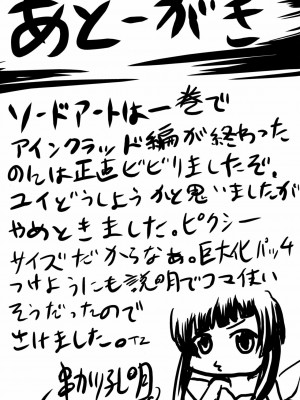 あとーがき
ソードアートは一巻で
アインクラッド編が終わった
のには正直ビビりましたぞ。
ユイどうしようかと思いましたが
やめときました。ピクシー
サイズだからなぁ。巨大化パッチ
つけようにも説明でコマ使い
そうだったので
さけました。
串かり孔明